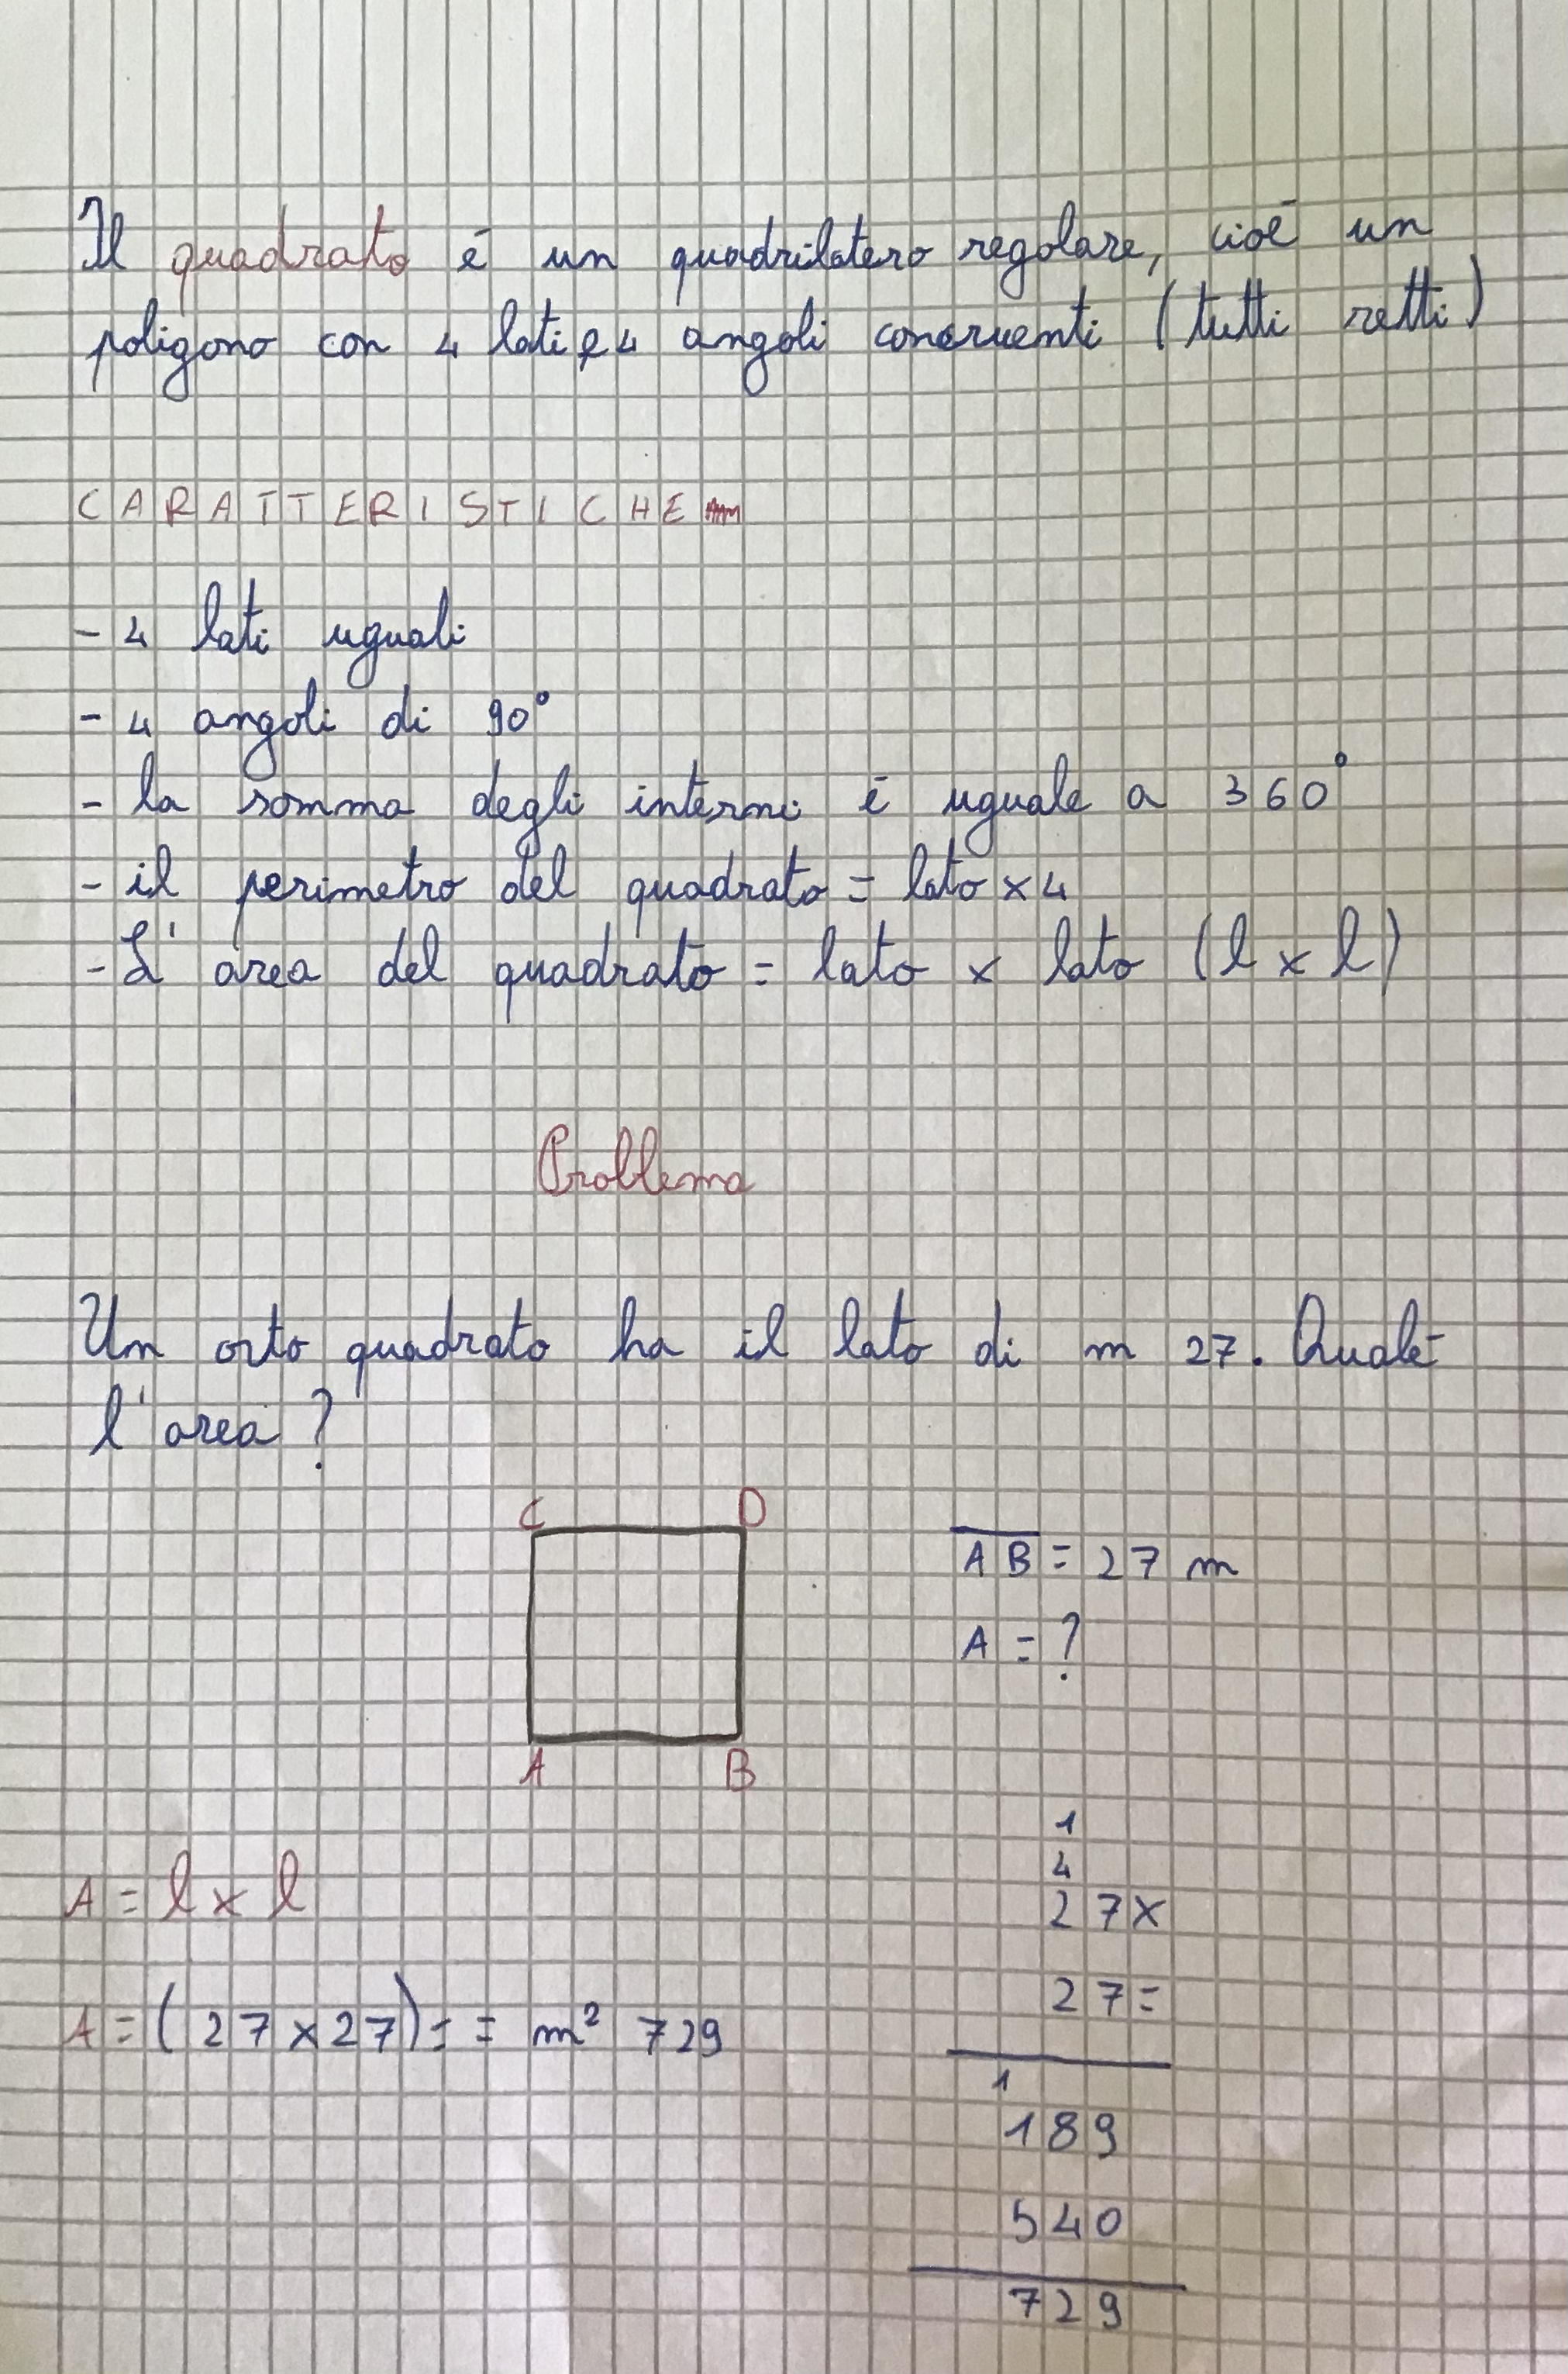 Il quadrato é un quadrilatero regolare, cioé un
poligono con 4 lati e 4 angoli concruenti (tutti retti)
CARATTERISTICHE
- 4 lati uguali
- 4 angoli di 90°
- la somma degli interni é uguale a 360°
- il perimetro del quadrato = lato x 4
- L' area del quadrato = lato x lato (l x l)
Problema
Un orto quadrato ha il lato di m 27. Qualé
l'area?
C D
A B
AB = 27 m
A = ?
A = l x l
A = (27 x 27) = = m² 729
1
4
27x
27=
1
189
540
729